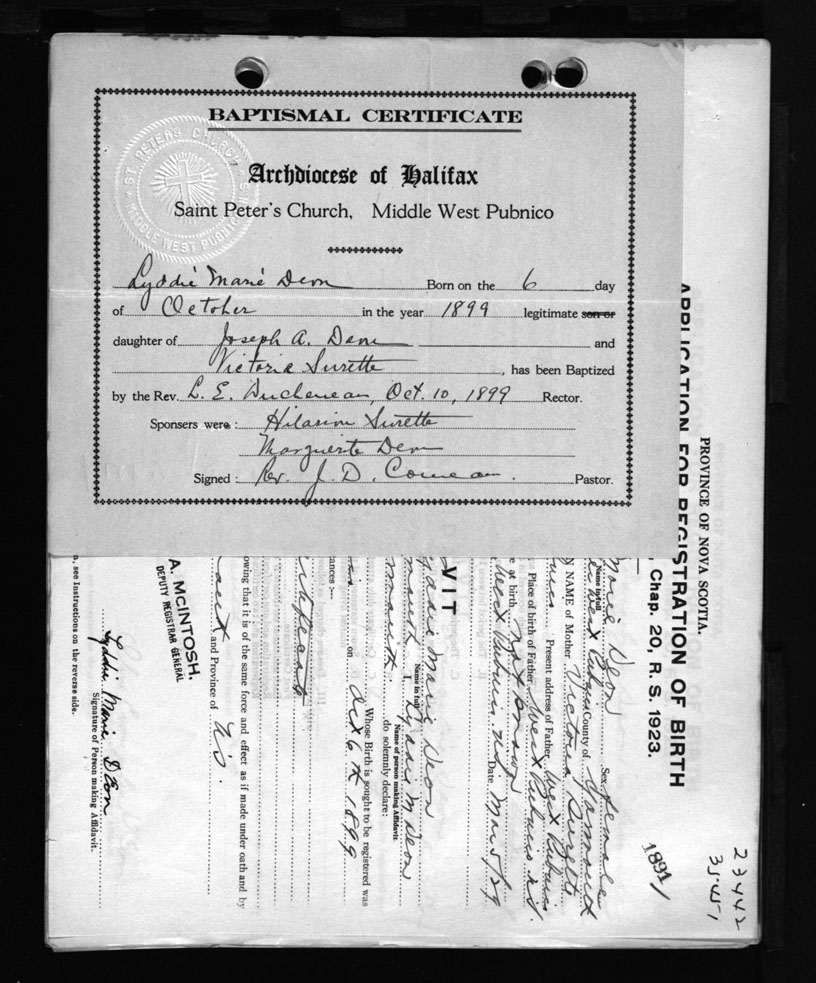 BAPTISMAL CERTIFICATE
ST. PETERS CHURCH
MIDDLE WEST PUBNICO
Archdiocese of Halifax
Saint Peter's Church, Middle West Pubnico
Lyddie Marie Deon Born on the 6 day
of October in the year 1899 legitimate son or
daughter of Joseph A. Deon and
Victoria Surette, has been Baptized
by the Rev. L. E. Duchenean, Oct. 10, 1899 Rector.
Sponsers were: Hilarion Surette
Marguerite Deon
Signed: Rev. J. D. Comeau. Pastor.
23442
35451
1899/
PROVINCE OF NOVA SCOTIA.
APPLICATION FOR REGISTRATION OF BIRTH
Chap. 20, R. S. 1923.
Marie Deon Sex female
Name in full
West Pub County of Yarmouth
NAME of Mother Victoria Surette
Present address of Father West Pubnico
Place of birth of Father West Pubnico N.S.
e at birth not known
West Pubnico N.S. Date Mar 5/29
VIT
Lyddie Marie Deon
Name in full
mouth I, Lyddie M Deon
Name of person making Affidavit.
mouth do solemnly declare:
Whose Birth is sought to be registered was
on Oct 6th 1899
tances:—
owing that it is of the same force and effect as if made under oath and by
and Province of N.S.
A. McINTOSH.
DEPUTY REGISTRAR GENERAL
Lyddie Marie DEon
Signature of Person making Affidavit.
, see Instructions on the reverse side.